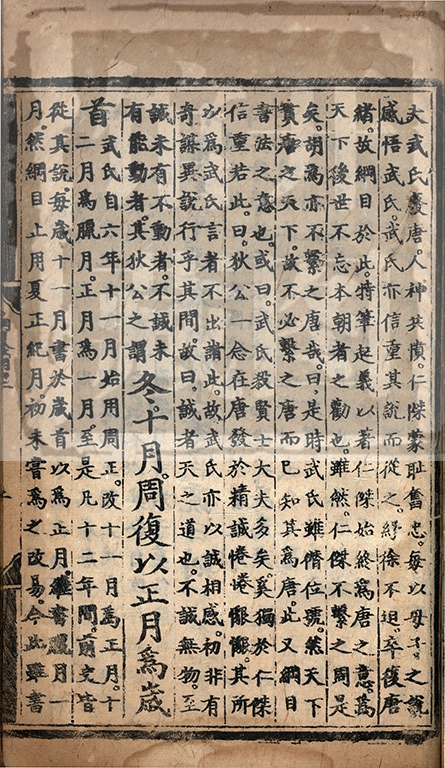 夫武氏廢唐。人神共憤。仁傑蒙耻奮忠。每以母子之說
感悟武氏。武氏亦信重其說而從之。紓徐不迫。卒復唐
緒。故綱目於此。特筆起義。以著仁傑始終爲唐之意。爲
天下後世不忘本朝者之勸也。雖然。仁傑不繫之周是
矣。胡爲亦不繫之唐哉。曰。是時武氏雖僭位號。然天下
實唐之天下。故不必繫之唐而已知其爲唐。此又綱目
書法之意也。或曰。武氏殺賢士大夫多矣。奚獨於仁傑
信重若此。曰。狄公一念在唐。發於精誠惓惓懇懇。其所
以爲武氏言者。不出諸此。故武氏亦以誠相感。初非有
奇謀異說行乎其間。故曰。誠者天之道也。不誠無物。至
誠未有不動者。不誠未
有能動者。其狄公之謂
冬。十月。周復以正月爲歲
首
武氏自六年十一月始用周正。改十一月爲正月。十
二月爲臘月。正月爲一月。至是凡十二年間。前史皆
從其說。每歲十一月書於歲首。以爲正月。雖書臘月一
月。然綱目止用夏正紀月。初未嘗爲之改易。今此雖書